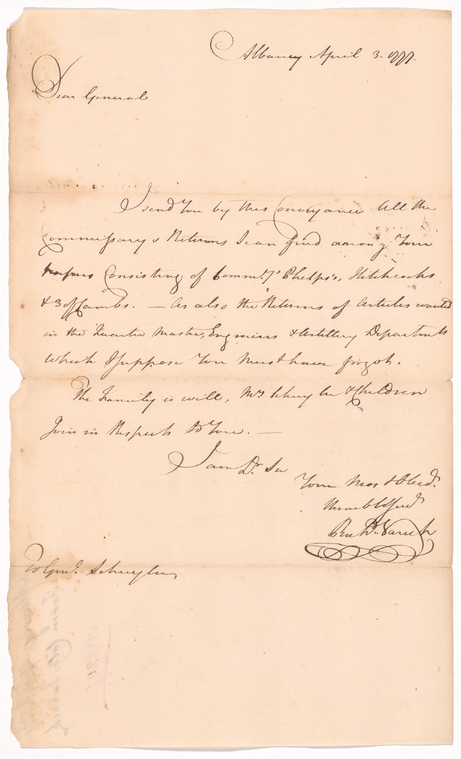 Albany April 3. 1777.
Dear General
I send You by this Conveyance All the
Commissary's Returns I can find among Your
papers Consisting of Commy. Phelps's, Hitchcocks
& 3 of Cambs. — As also the Returns of Articles wanted
in the Quarter Master, Engineers & Artillery Departments
which I suppose You must have forgot.
The Family is well, Mrs. Schuyler & Children
Join in Respects to You. —
I am Dr. Sir
Your Most Obedt.
Humble Servt.
Richd. Varick
To Genl. Schuyler